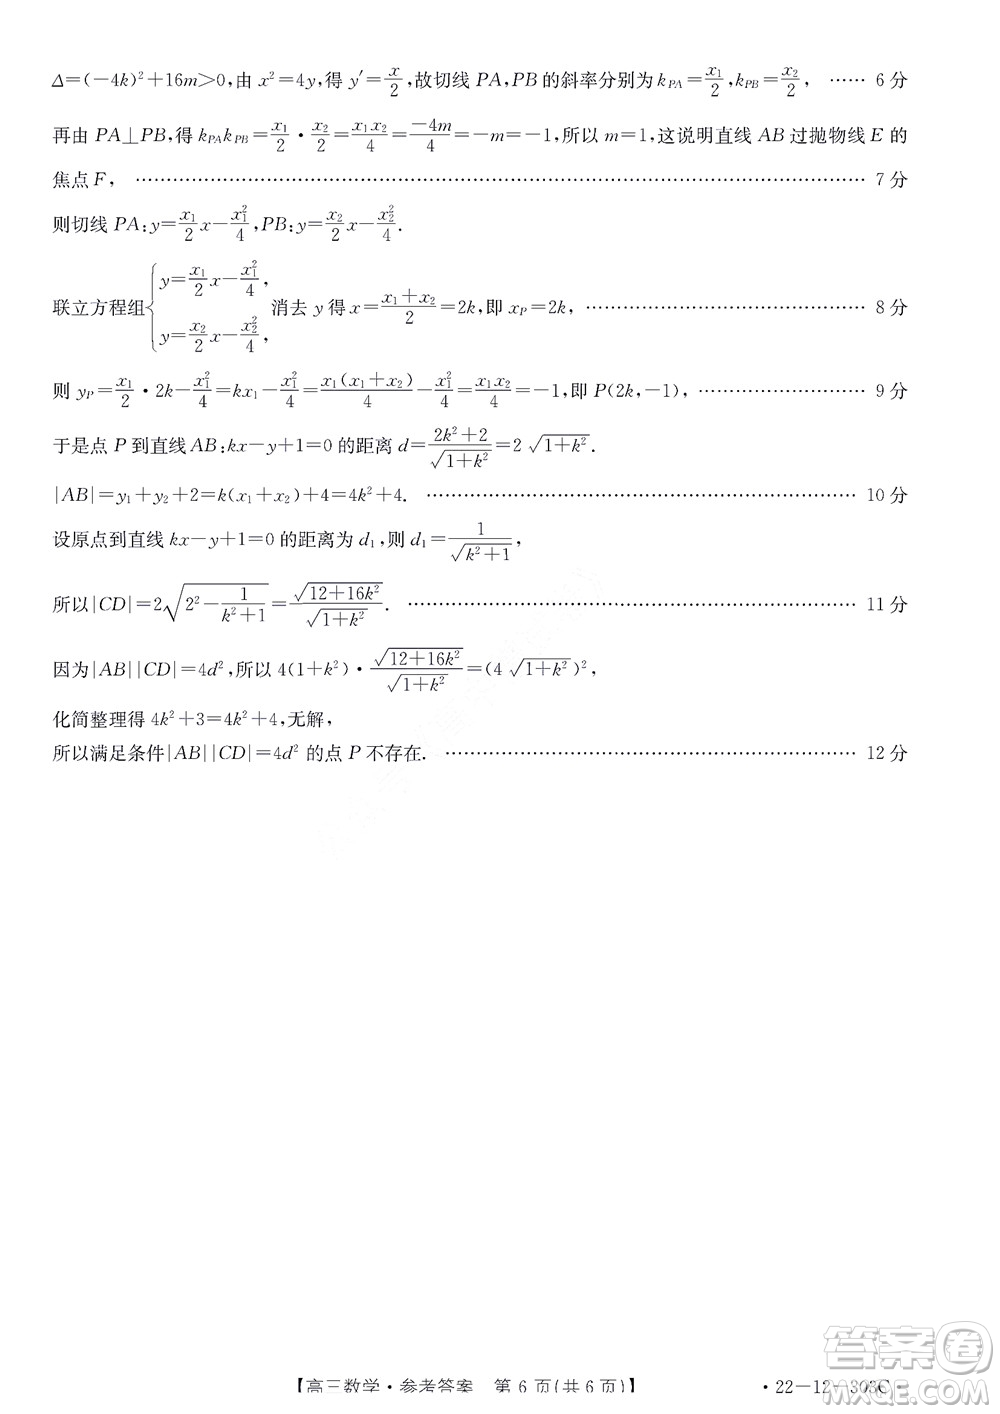 Δ=(-4k)²+16m>0,由 x²=4y,得 y′=x/2,故切线 PA,PB 的斜率分别为 k_PA=x₁/2,k_PB=x₂/2, …… 6 分
再由 PA⊥PB,得 k_PA k_PB=x₁/2·x₂/2=x₁x₂/4=-4m/4=-m=-1,所以 m=1,这说明直线 AB 过抛物线 E 的
焦点 F, …… 7 分
则切线 PA:y=x₁/2 x-x₁²/4,PB:y=x₂/2 x-x₂²/4.
联立方程组{y=x₁/2 x-x₁²/4, y=x₂/2 x-x₂²/4, 消去 y 得 x=(x₁+x₂)/2=2k,即 x_P=2k, …… 8 分
则 y_P=x₁/2·2k-x₁²/4=kx₁-x₁²/4=x₁(x₁+x₂)/4-x₁²/4=x₁x₂/4=-1,即 P(2k,-1), …… 9 分
于是点 P 到直线 AB:kx-y+1=0 的距离 d=(2k²+2)/√(1+k²)=2√(1+k²).
|AB|=y₁+y₂+2=k(x₁+x₂)+4=4k²+4. …… 10 分
设原点到直线 kx-y+1=0 的距离为 d₁,则 d₁=1/√(k²+1),
所以|CD|=2√(2²-1/(k²+1))=√(12+16k²)/√(1+k²). …… 11 分
因为|AB||CD|=4d²,所以 4(1+k²)·√(12+16k²)/√(1+k²)=(4√(1+k²))²,
化简整理得 4k²+3=4k²+4,无解,
所以满足条件|AB||CD|=4d² 的点 P 不存在. …… 12 分
【高三数学·参考答案 第 6 页(共 6 页)】
·22-12-303C·
答案圈
MXQE.COM